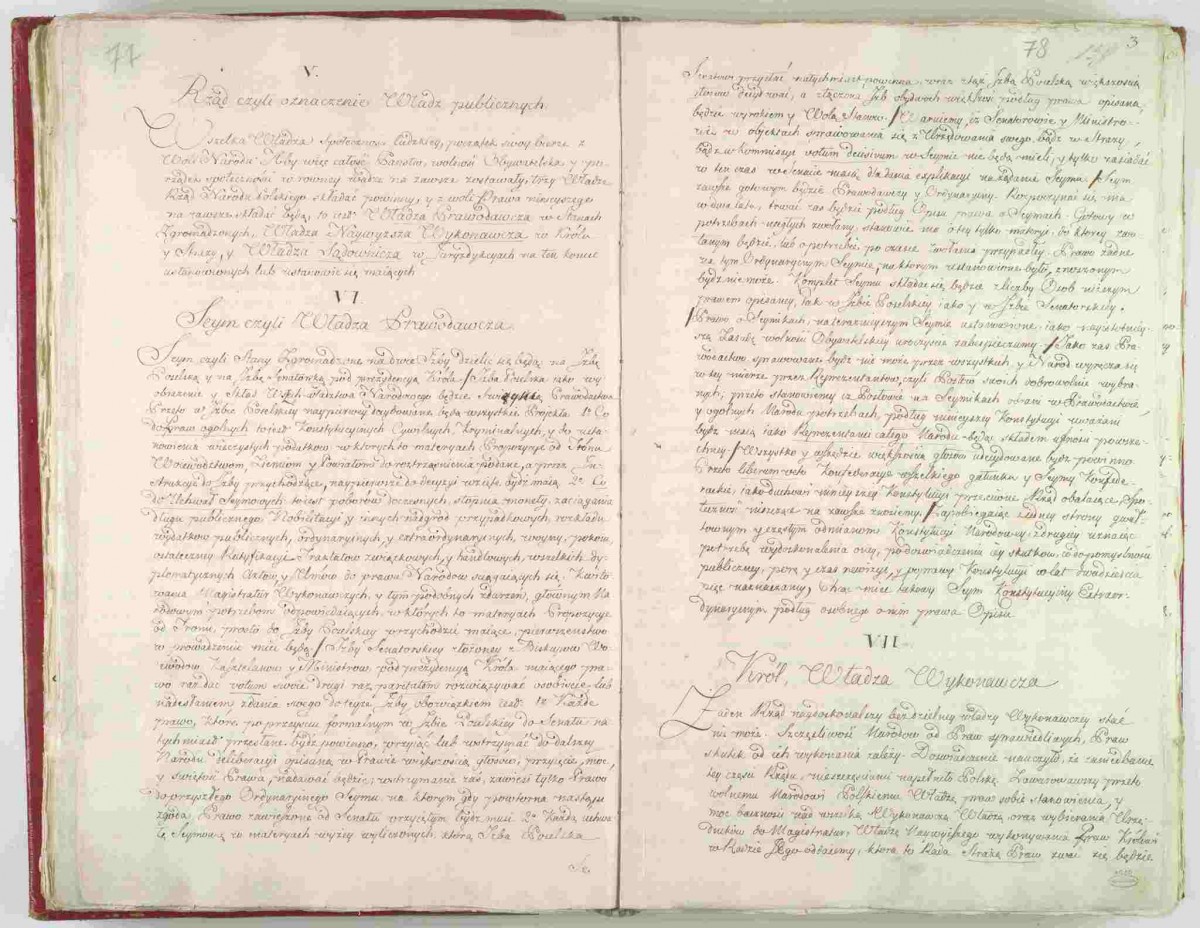 77
V.
Rząd czyli oznaczenie Władz publicznych.
Wszelka Władza społeczności ludzkiey, początek swoy bierze z
Woli Narodu. Aby więc całość Państw, wolność Obywatelska, y po-
rządek społeczności w rowney wadze na zawsze zostawały, trzy Władze
Rząd Narodu Polskiego składać powinny, y z woli Prawa ninieyszego
na zawsze składać będą, to iest Władza Prawodawcza w Stanach
Zgromadzonych, Władza Naywyższa Wykonawcza w Królu
y Straży, y Władza Sądownicza w Juryzdykcyach na ten koniec
ustanowionych lub ustanowić się maiących.
VI.
Seym czyli Władza Prawodawcza.
Seym czyli Stany Zgromadzone na dwie Izby dzielić się będą, na Izbę
Poselską y na Izbę Senatorską pod prezydencyą Króla. Izba Poselska iako wy-
obrażenie y skład Wszechwładztwa Narodowego będzie Świątynią Prawodawstwa.
Przeto w Izbie Poselskiey naypierwey decydowane będą wszystkie Proiekta. 1º Co
do Praw ogolnych to iest Konstytucyinych Cywilnych, Kryminalnych, y do usta-
nowienia wieczystych podatkow, w ktorych to materyach Propozycye od Tronu
Woiewodztwom, Ziemiom y Powiatom do roztrząśnienia podane, a przez In-
strukcye do Izby przychodzące, naypierwsze do decyzyi wzięte bydź maią. 2º Co
do Uchwał Seymowych to iest poborow doczesnych, stopnia monety, zaciągania
długu publicznego, Nobilitacyi y innych nadgrod przypadkowych, rozkładu
wydatkow publicznych, ordynaryinych y extraordynaryinych, woyny, pokoiu,
ostateczney Ratyfikacyi Traktatow związkowych, y handlowych, wszelkich dy-
plomatycznych Aktow, y Umow do prawa Narodow ściągaiących się. Kwito-
wania Magistratur Wykonawczych, y tym podobnych zdarzeń, głownym Na-
rodowym potrzebom odpowiadaiących, w ktorych to materyach Propozycye
od Tronu, prosto do Izby Poselskiey przychodzić maiące, pierwszeństwo
w prowadzeniu mieć będą. Izby Senatorskiey złożoney z Biskupow Wo-
iewodow Kasztelanow y Ministrow, pod prezydencyą Króla maiącego pra-
wo raz dać votum swoie drugi raz paritatem rozwiązywać osobiście lub
nadesłaniem zdania swego do teyże Izby obowiązkiem iest. 1º Każde
prawo, ktore po przeyściu formalnym w Izbie Poselskiey do Senatu na-
tychmiast przesłane bydź powinno, przyiąć lub wstrzymać do dalszey
Narodu deliberacyi opisaną w Prawie większością głosow, przyięcie, moc
y świętość Prawa, nadawać będzie, wstrzymanie zaś, zawiesi tylko Prawo
do przyszłego Ordynaryinego Seymu na ktorym gdy powtorna nastąpi
zgoda, Prawo zawieszone od Senatu przyiętym bydź musi. 2º Każdą uchwa-
łę Seymową w materyach wyżey wyliczonych, ktorą Izba Poselska
Se.
78
3
Senatowi przysłać natychmiast powinna, wraz z taż Izbą Poselską większością
głosow decydować, a złączona Izb obydwoch większość podług prawa opisana
będzie wyrokiem y Wolą Stanow. Waruiemy, iż Senatorowie y Ministro-
wie w obiektach sprawowania się z Urzędowania swego, bądź w Straży,
bądź w Kommissyi votum decisivum w Seymie nie będą mieli, y tylko zasiadać
w ten czas w Senacie maią dla dania explikacyi na żądanie Seymu. Seym
zawsze gotowym będzie Prawodawczy y Ordynaryiny. Rozpoczynać się ma
co dwa lata, trwać zaś będzie podług Opisu prawa o Seymach. Gotowy w
potrzebach nagłych zwołany, stanowić ma o tey tylko materyi, do ktorey zwo-
łanym będzie, lub o potrzebie po czasie zwołania przypadłey. Prawo żadne
na tym Ordynaryinym Seymie, na ktorym ustanowione było, znoszonym
bydź nie może. Komplet Seymu składać się będzie z liczby Osob niższym
prawem opisaney, tak w Izbie Poselskiey iako y w Izbie Senatorskiey.
Prawo o Seymikach, na teraznieyszym Seymie ustanowione, iako nayistotniey-
szą Zasadę wolności Obywatelskiey uroczyście zabezpieczamy. Jako zaś Pra-
wodawstwo sprawowane bydź nie może przez wszystkich, y Narod wyręcza się
w tey mierze przez Reprezentantow, czyli Posłow swoich dobrowolnie wybra-
nych, przeto stanowiemy, iż Posłowie na Seymikach obrani w Prawodawstwie,
y ogolnych Narodu potrzebach, podług ninieyszey Konstytucyi uważani
bydź maią iako Reprezentanci całego Narodu, będąc składem ufności powsze-
chney. Wszystko y wszędzie większością głosow udecydowane bydź powinno.
Przeto liberum veto, Konfederacye wszelkiego gatunku y Seymy Konfede-
rackie, iako duchowi ninieyszey Konstytucyi przeciwne, Rząd obalaiące, Spo-
łeczność niszczące na zawsze znosiemy. Zapobiegaiąc z iedney strony gwał-
townym y częstym odmianom Konstytucyi Narodowey, z drugiey uznaiąc
potrzebę wydoskonalenia oney, po doświadczeniu iey skutkow, co do pomyślności
publiczney, porę y czas rewizyi, y poprawy Konstytucyi co lat dwadzieścia
pięć naznaczamy, Chcąc mieć takowy Seym Konstytucyiny Extraor-
dynaryinym podług osobnego o nim prawa Opisu.
VII.
Król, Władza Wykonawcza
Żaden Rząd naydoskonalszy bez dzielney władzy Wykonawczey stać
nie może. Szczęśliwość Narodow od Praw sprawiedliwych, Praw
skutek od ich wykonania zależy. Doświadczenie nauczyło, że zaniedbanie
tey części Rządu, nieszczęściami napełniło Polskę. Zawarowawszy przeto
wolnemu Narodowi Polskiemu Władzę praw sobie stanowienia, y
moc baczności nad wszelką Wykonawczą Władzą oraz wybierania Urzę-
dnikow do Magistratur, Władzę Naywyższego wykonywania Praw Królowi
w Radzie Jego oddaiemy, ktora to Rada Strażą Praw zwać się będzie